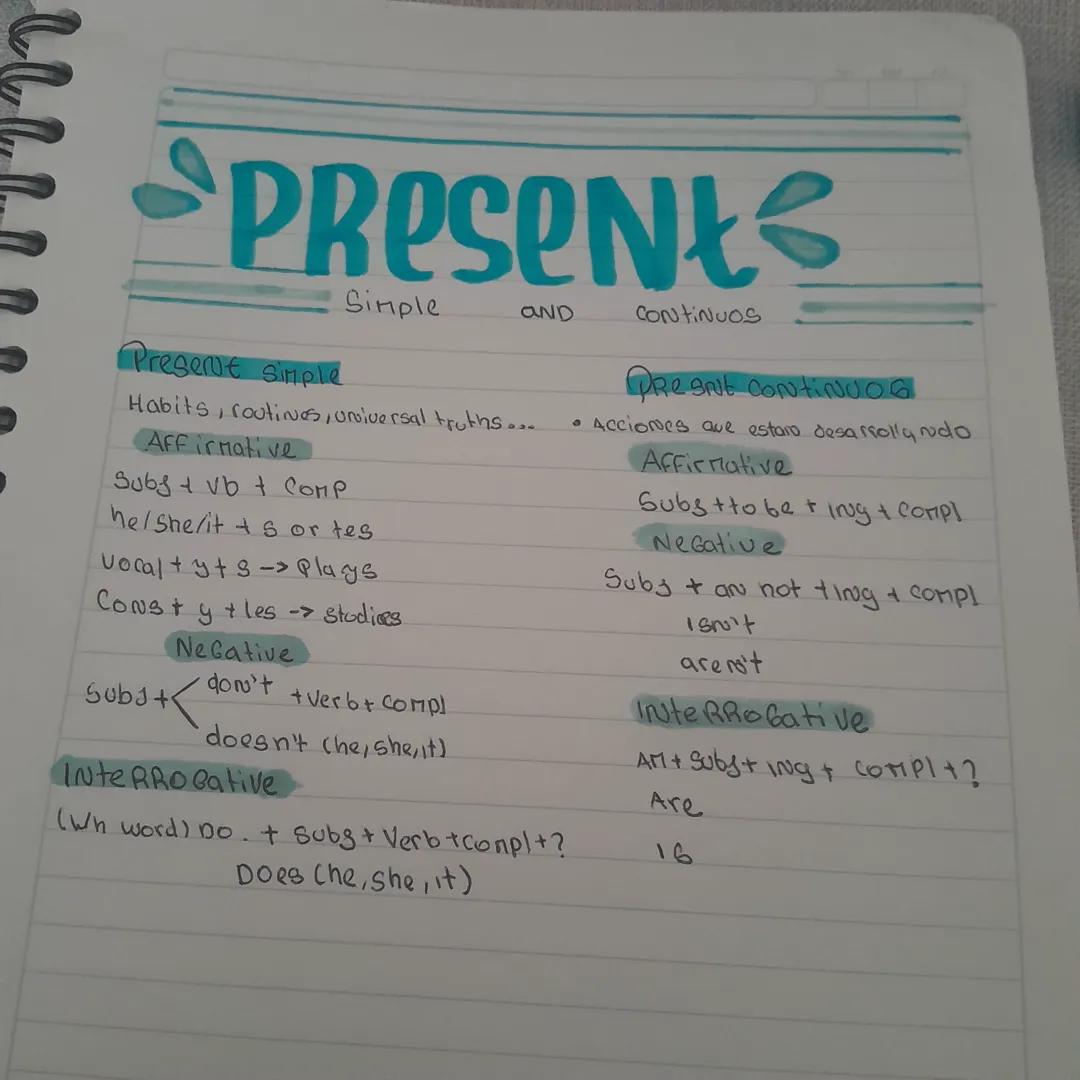 PRESENT
Simple AND CONTINUOS
Present simple
Habits, routines, universal truths...
Affirmative
Subj + vb + comp
he/she/it + s or tes
vocal + y + s -> plays
Cons + y + ies -> studies
Negative
Subj + don't + verb + compl
doesn't (he, she, it)
INTERROGATIVE
(Wh word) Do. + Subj + Verb + compl + ?
Does (he, she, it)
PRESNT CONTINUOS
• Acciones que estan desarrollando
Affirmative
Subj + to be + ing + compl
Negative
Subj + am not + ing + compl
isn't
aren't
INTERROGATIVE
AM + Subj + ing + compl + ?
Are
IS